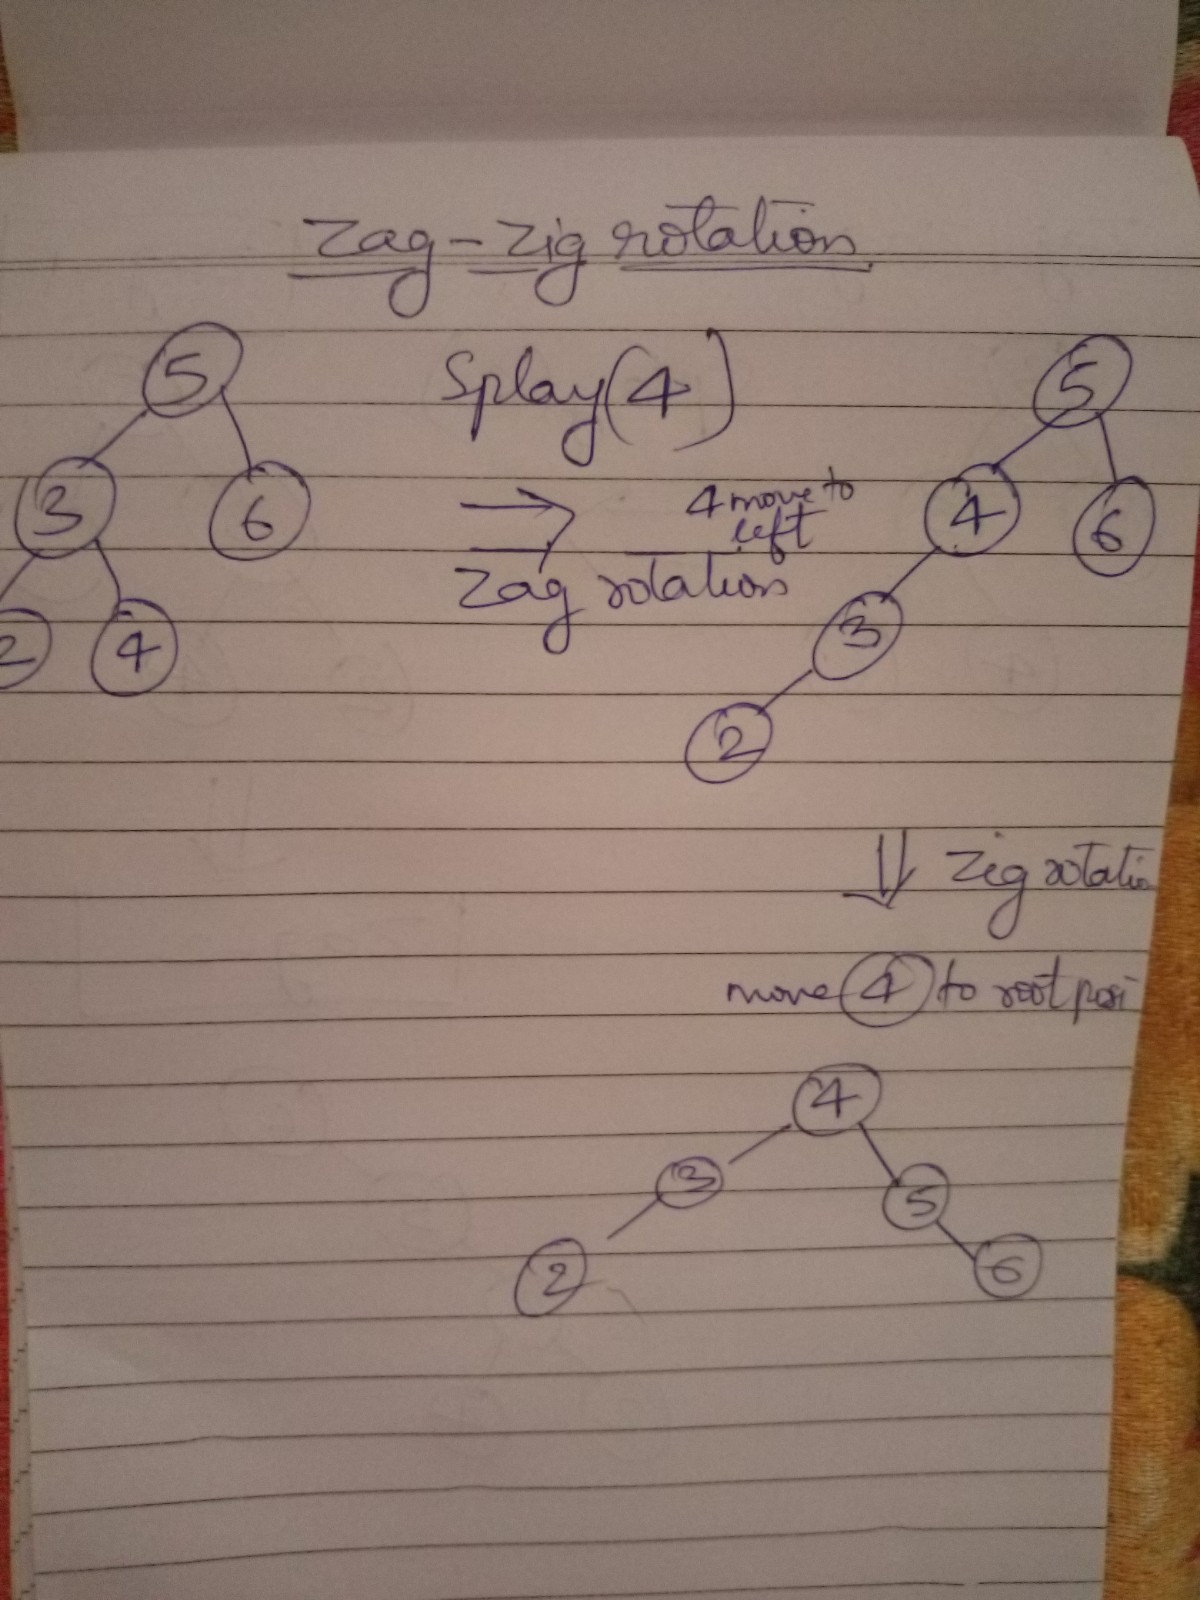 Zag-Zig rotation
5
3 6
2 4
Splay(4)
4 move to
left
Zag rotation
5
4 6
3
2
Zig rotatio
move 4 to root posi
4
3 5
2 6